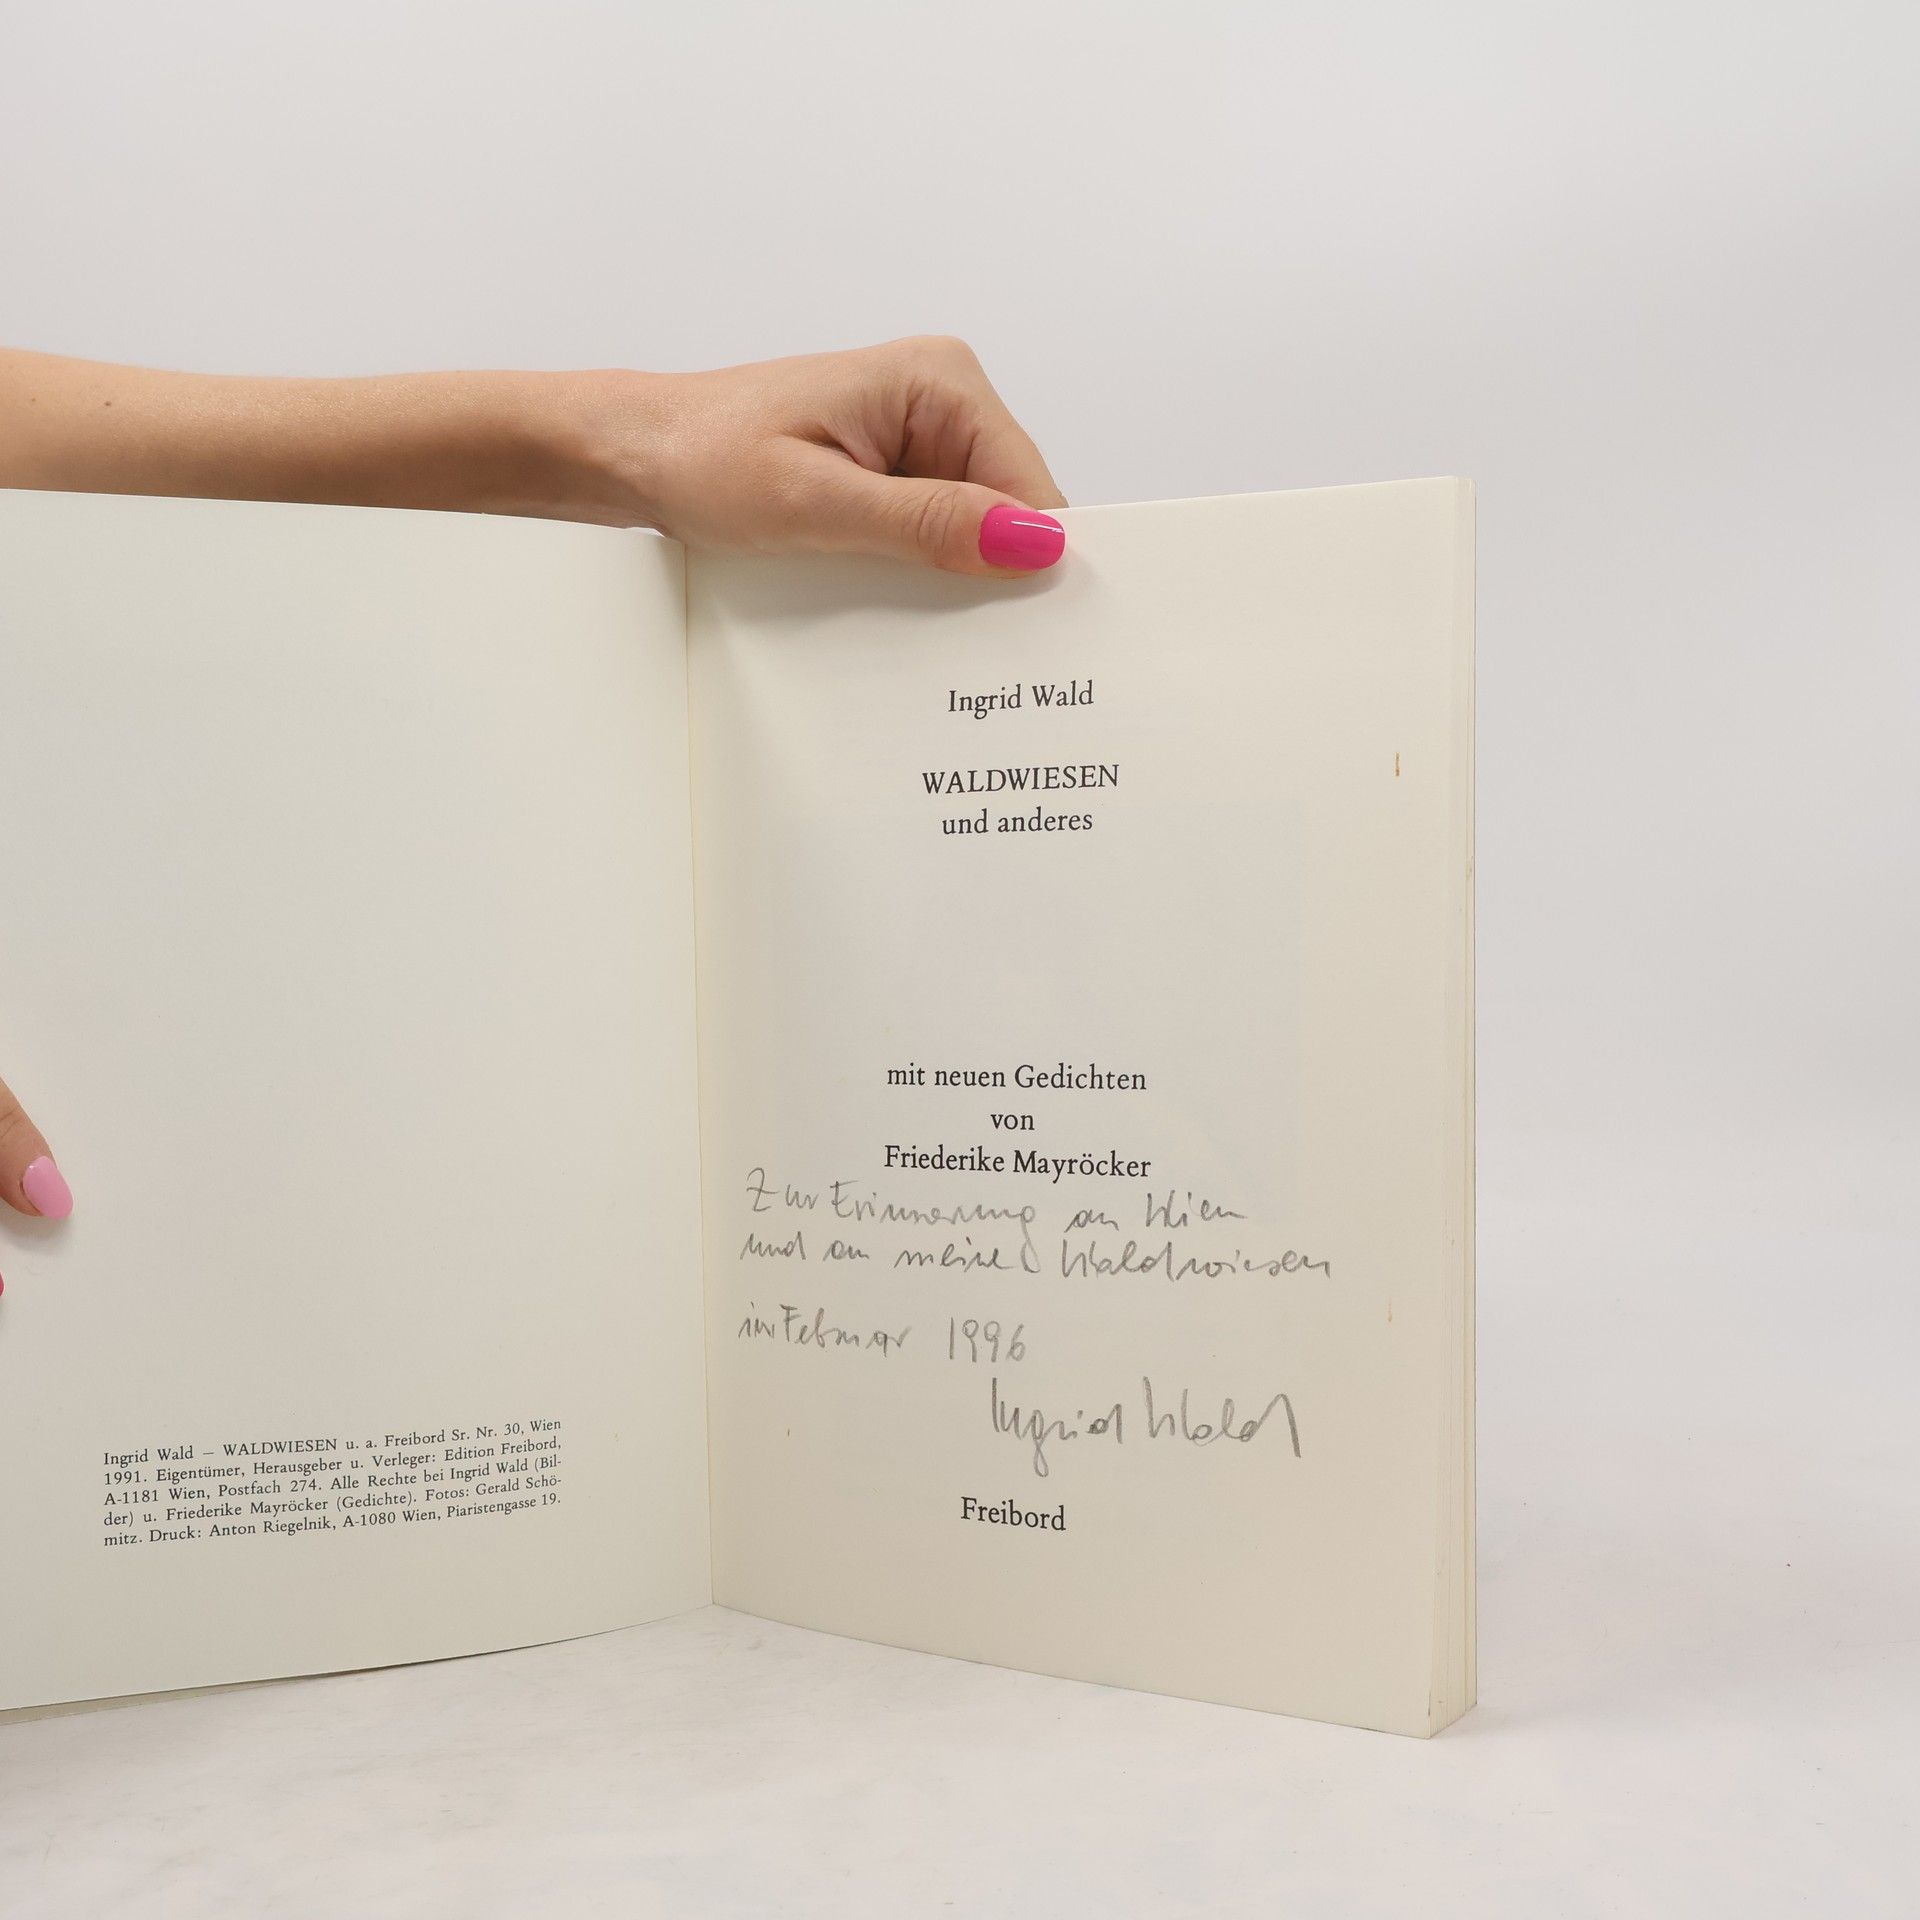 Ingrid Wald — WALDWIESEN u. a. Freibord Sr. Nr. 30, Wien
1991. Eigentümer, Herausgeber u. Verleger: Edition Freibord,
A-1181 Wien, Postfach 274. Alle Rechte bei Ingrid Wald (Bil-
der) u. Friederike Mayröcker (Gedichte). Fotos: Gerald Schö-
mitz. Druck: Anton Riegelnik, A-1080 Wien, Piaristengasse 19.
Ingrid Wald
WALDWIESEN
und anderes
mit neuen Gedichten
von
Friederike Mayröcker
Zur Erinnerung an Wien
und an meine Waldwiesen
im Februar 1996
Ingrid Wald
Freibord